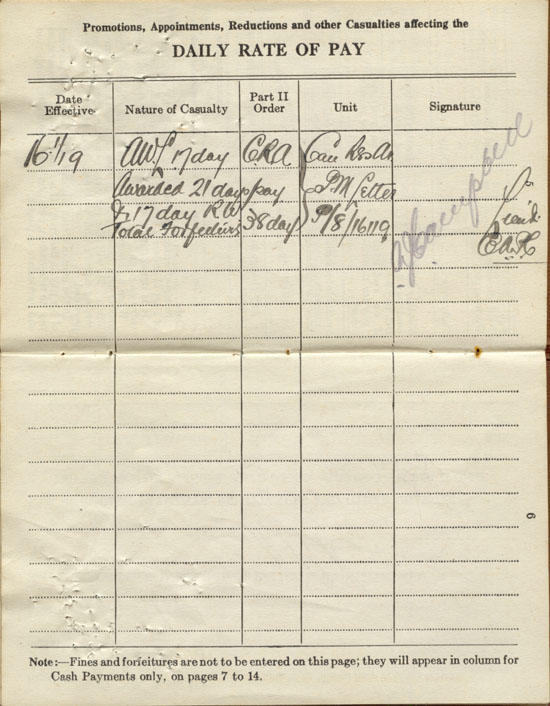 Promotions, Appointments, Reductions and other Casualties affecting the
DAILY RATE OF PAY
Date Effective Nature of Casualty Part II Order Unit Signature
16/1/19 AWL 17 day C.R.A
Awarded 21 days pay P.M. Letter
& 17 day R.W. P/8/16119
Total Forfeiture 38 day
Campbell
6
Note:—Fines and forfeitures are not to be entered on this page; they will appear in column for
Cash Payments only, on pages 7 to 14.